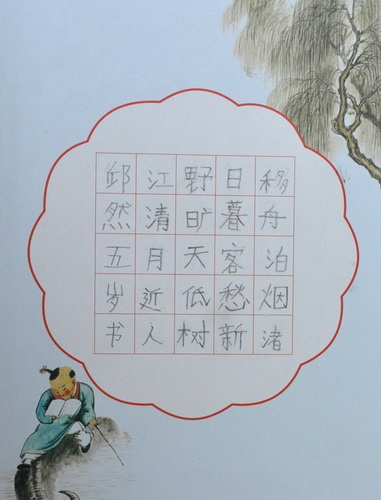 移舟泊烟渚
日暮客愁新
野旷天低树
江清月近人
邱然五岁书